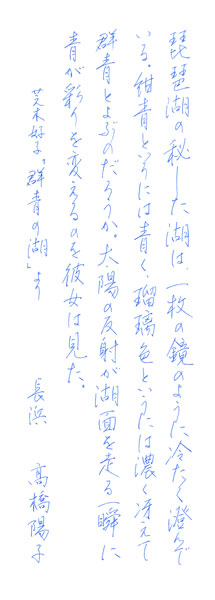 琵琶湖の秘した湖は、一枚の鏡のように冷たく澄んで
いる。紺青というには青く、瑠璃色というには濃く冴えて
群青とよぶのだろうか。太陽の反射が湖面を走る一瞬に
青が彩りを変えるのを彼女は見た。
芝木好子「群青の湖」より
長浜 高橋陽子